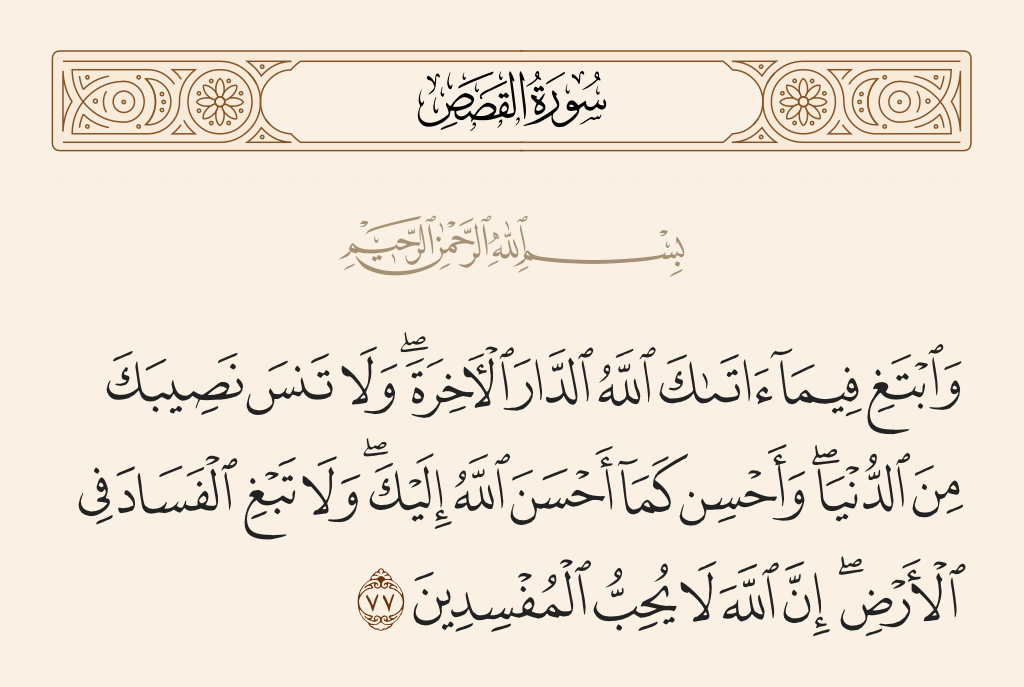 سُورَةُ القَصَصِ
بِسْمِ ٱللَّهِ ٱلرَّحْمَٰنِ ٱلرَّحِيمِ
وَٱبْتَغِ فِيمَآ ءَاتَىٰكَ ٱللَّهُ ٱلدَّارَ ٱلْأَخِرَةَ ۖ وَلَا تَنسَ نَصِيبَكَ
مِنَ ٱلدُّنْيَا ۖ وَأَحْسِن كَمَآ أَحْسَنَ ٱللَّهُ إِلَيْكَ ۖ وَلَا تَبْغِ ٱلْفَسَادَ فِى
ٱلْأَرْضِ ۖ إِنَّ ٱللَّهَ لَا يُحِبُّ ٱلْمُفْسِدِينَ ٧٧